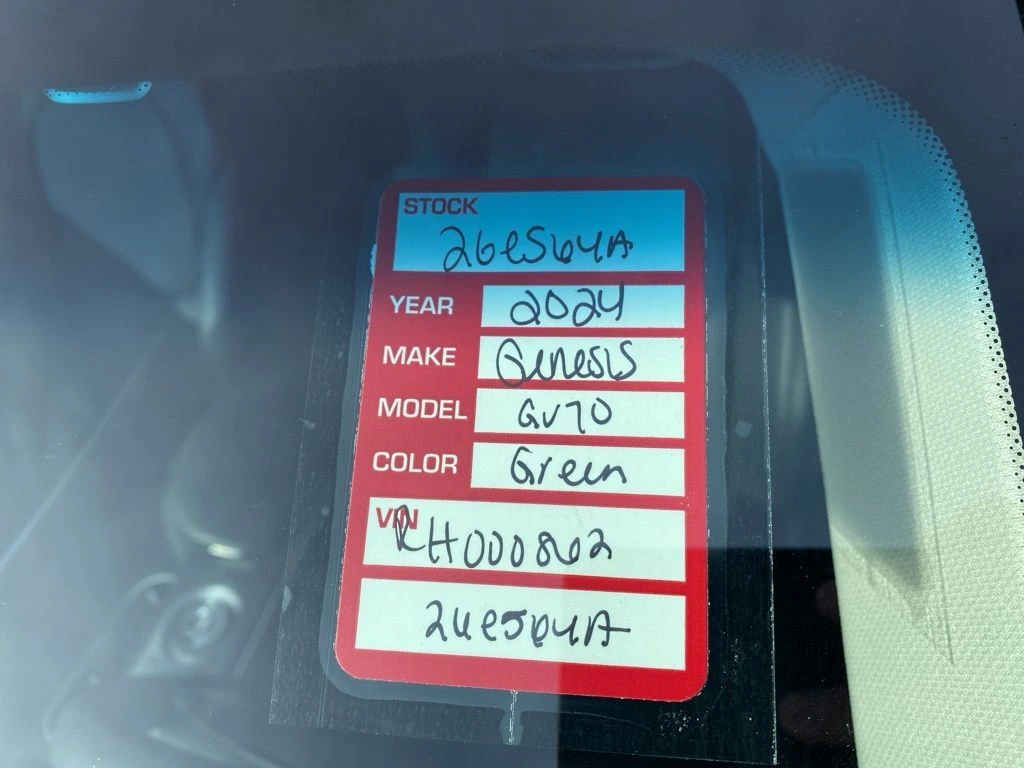 STOCK
26e564A
YEAR 2024
MAKE Genesis
MODEL GV70
COLOR Green
VIN
RH000862
26e564A